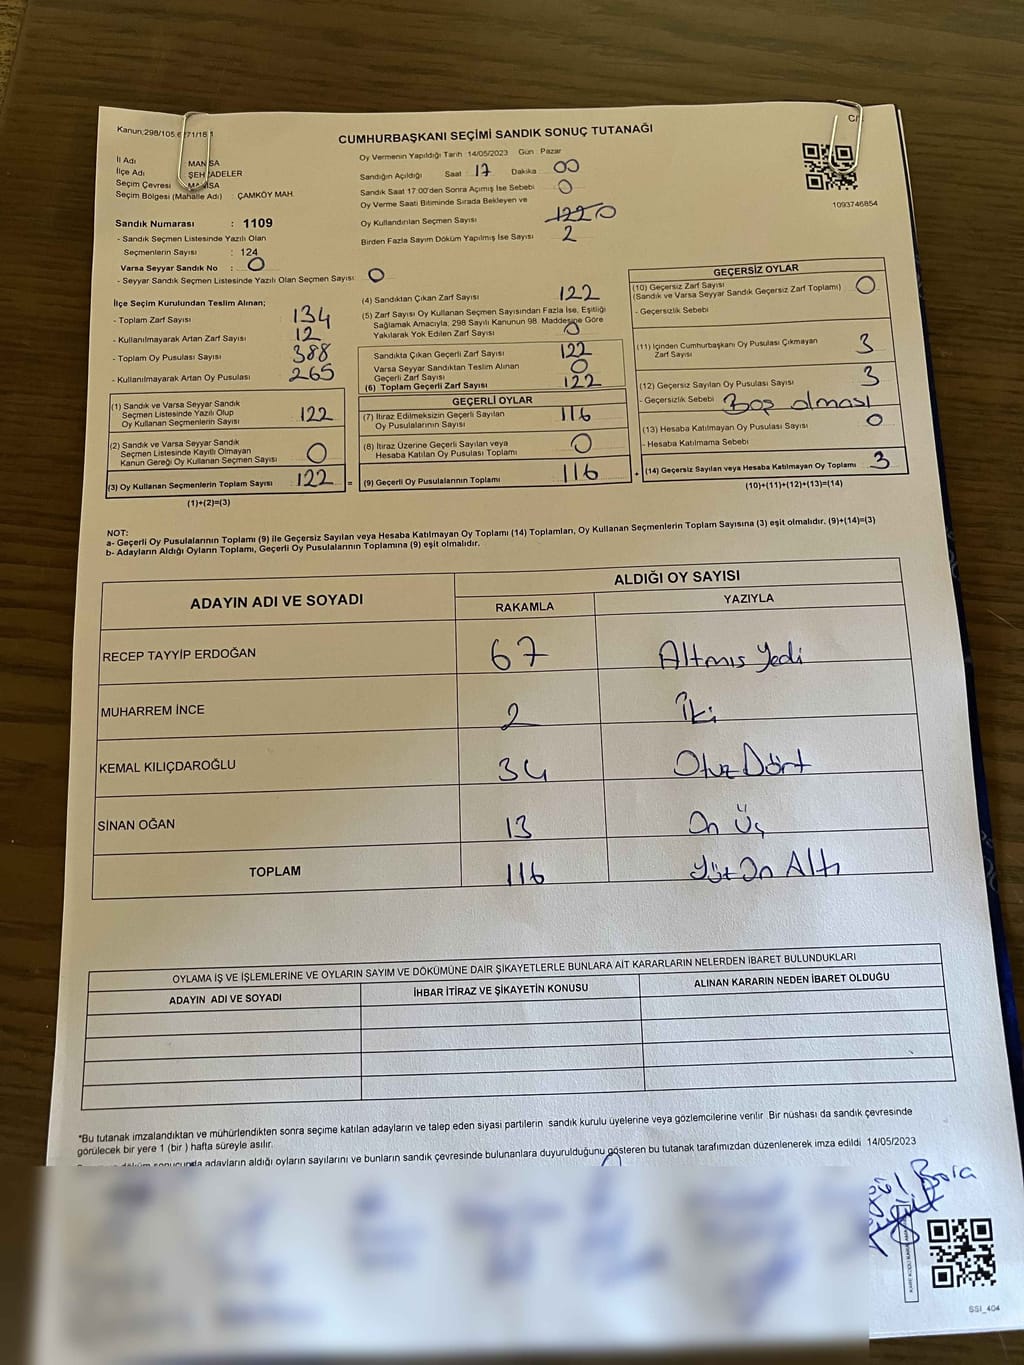 Kanun:298/105
C/
CUMHURBAŞKANI SEÇİMİ SANDIK SONUÇ TUTANAĞI
İl Adı MANİSA
İlçe Adı ŞEHZADELER
Seçim Çevresi MANİSA
Seçim Bölgesi (Mahalle Adı) : ÇAMKÖY MAH.
Oy Vermenin Yapıldığı Tarih 14/05/2023 Gün : Pazar
Sandığın Açıldığı Saat 17 Dakika 00
Sandık Saat 17:00'den Sonra Açımış İse Sebebi 0
Oy Verme Saati Bitiminde Sırada Bekleyen ve
Oy Kullandırılan Seçmen Sayısı 0
Birden Fazla Sayım Döküm Yapılmış İse Sayısı 2
1093746854
Sandık Numarası : 1109
- Sandık Seçmen Listesinde Yazılı Olan
Seçmenlerin Sayısı : 124
Varsa Seyyar Sandık No : 0
- Seyyar Sandık Seçmen Listesinde Yazılı Olan Seçmen Sayısı : 0
İlçe Seçim Kurulundan Teslim Alınan;
- Toplam Zarf Sayısı 134
- Kullanılmayarak Artan Zarf Sayısı 12
- Toplam Oy Pusulası Sayısı 388
- Kullanılmayarak Artan Oy Pusulası 265
(1) Sandık ve Varsa Seyyar Sandık
Seçmen Listesinde Yazılı Olup
Oy Kullanan Seçmenlerin Sayısı 122
(2) Sandık ve Varsa Seyyar Sandık
Seçmen Listesinde Kayıtlı Olmayan
Kanun Gereği Oy Kullanan Seçmen Sayısı 0
(3) Oy Kullanan Seçmenlerin Toplam Sayısı 122 =
(1)+(2)=(3)
(4) Sandıktan Çıkan Zarf Sayısı 122
(5) Zarf Sayısı Oy Kullanan Seçmen Sayısından Fazla İse, Eşitliği
Sağlamak Amacıyla, 298 Sayılı Kanunun 98. Maddesine Göre
Yakılarak Yok Edilen Zarf Sayısı 0
Sandıkta Çıkan Geçerli Zarf Sayısı 122
Varsa Seyyar Sandıktan Teslim Alınan
Geçerli Zarf Sayısı 0
(6) Toplam Geçerli Zarf Sayısı 122
GEÇERLİ OYLAR
(7) İtiraz Edilmeksizin Geçerli Sayılan
Oy Pusulalarının Sayısı 116
(8) İtiraz Üzerine Geçerli Sayılan veya
Hesaba Katılan Oy Pusulası Toplamı 0
(9) Geçerli Oy Pusulalarının Toplamı 116 +
GEÇERSİZ OYLAR
(10) Geçersiz Zarf Sayısı
(Sandık ve Varsa Seyyar Sandık Geçersiz Zarf Toplamı) 0
- Geçersizlik Sebebi
(11) İçinden Cumhurbaşkanı Oy Pusulası Çıkmayan
Zarf Sayısı 3
(12) Geçersiz Sayılan Oy Pusulası Sayısı 3
- Geçersizlik Sebebi Boş olması
(13) Hesaba Katılmayan Oy Pusulası Sayısı 0
- Hesaba Katılmama Sebebi
(14) Geçersiz Sayılan veya Hesaba Katılmayan Oy Toplamı 3
(10)+(11)+(12)+(13)=(14)
NOT:
a- Geçerli Oy Pusulalarının Toplamı (9) ile Geçersiz Sayılan veya Hesaba Katılmayan Oy Toplamı (14) Toplamları, Oy Kullanan Seçmenlerin Toplam Sayısına (3) eşit olmalıdır. (9)+(14)=(3)
b- Adayların Aldığı Oyların Toplamı, Geçerli Oy Pusulalarının Toplamına (9) eşit olmalıdır.
ADAYIN ADI VE SOYADI ALDIĞI OY SAYISI
RAKAMLA YAZIYLA
RECEP TAYYİP ERDOĞAN 67 Altmıs Yedi
MUHARREM İNCE 2 İki
KEMAL KILIÇDAROĞLU 34 Otuz Dört
SİNAN OĞAN 13 On Üç
TOPLAM 116 Yüz On Altı
OYLAMA İŞ VE İŞLEMLERİNE VE OYLARIN SAYIM VE DÖKÜMÜNE DAİR ŞİKAYETLERLE BUNLARA AİT KARARLARIN NELERDEN İBARET BULUNDUKLARI
ADAYIN ADI VE SOYADI İHBAR İTİRAZ VE ŞİKAYETİN KONUSU ALINAN KARARIN NEDEN İBARET OLDUĞU
*Bu tutanak imzalandıktan ve mühürlendikten sonra seçime katılan adayların ve talep eden siyasi partilerin sandık kurulu üyelerine veya gözlemcilerine verilir. Bir nüshası da sandık çevresinde
görülecek bir yere 1 (bir) hafta süreyle asılır.
sonucunda adayların aldığı oyların sayılarını ve bunların sandık çevresinde bulunanlara duyurulduğunu gösteren bu tutanak tarafımızdan düzenlenerek imza edildi 14/05/2023
Bora
SSI_404